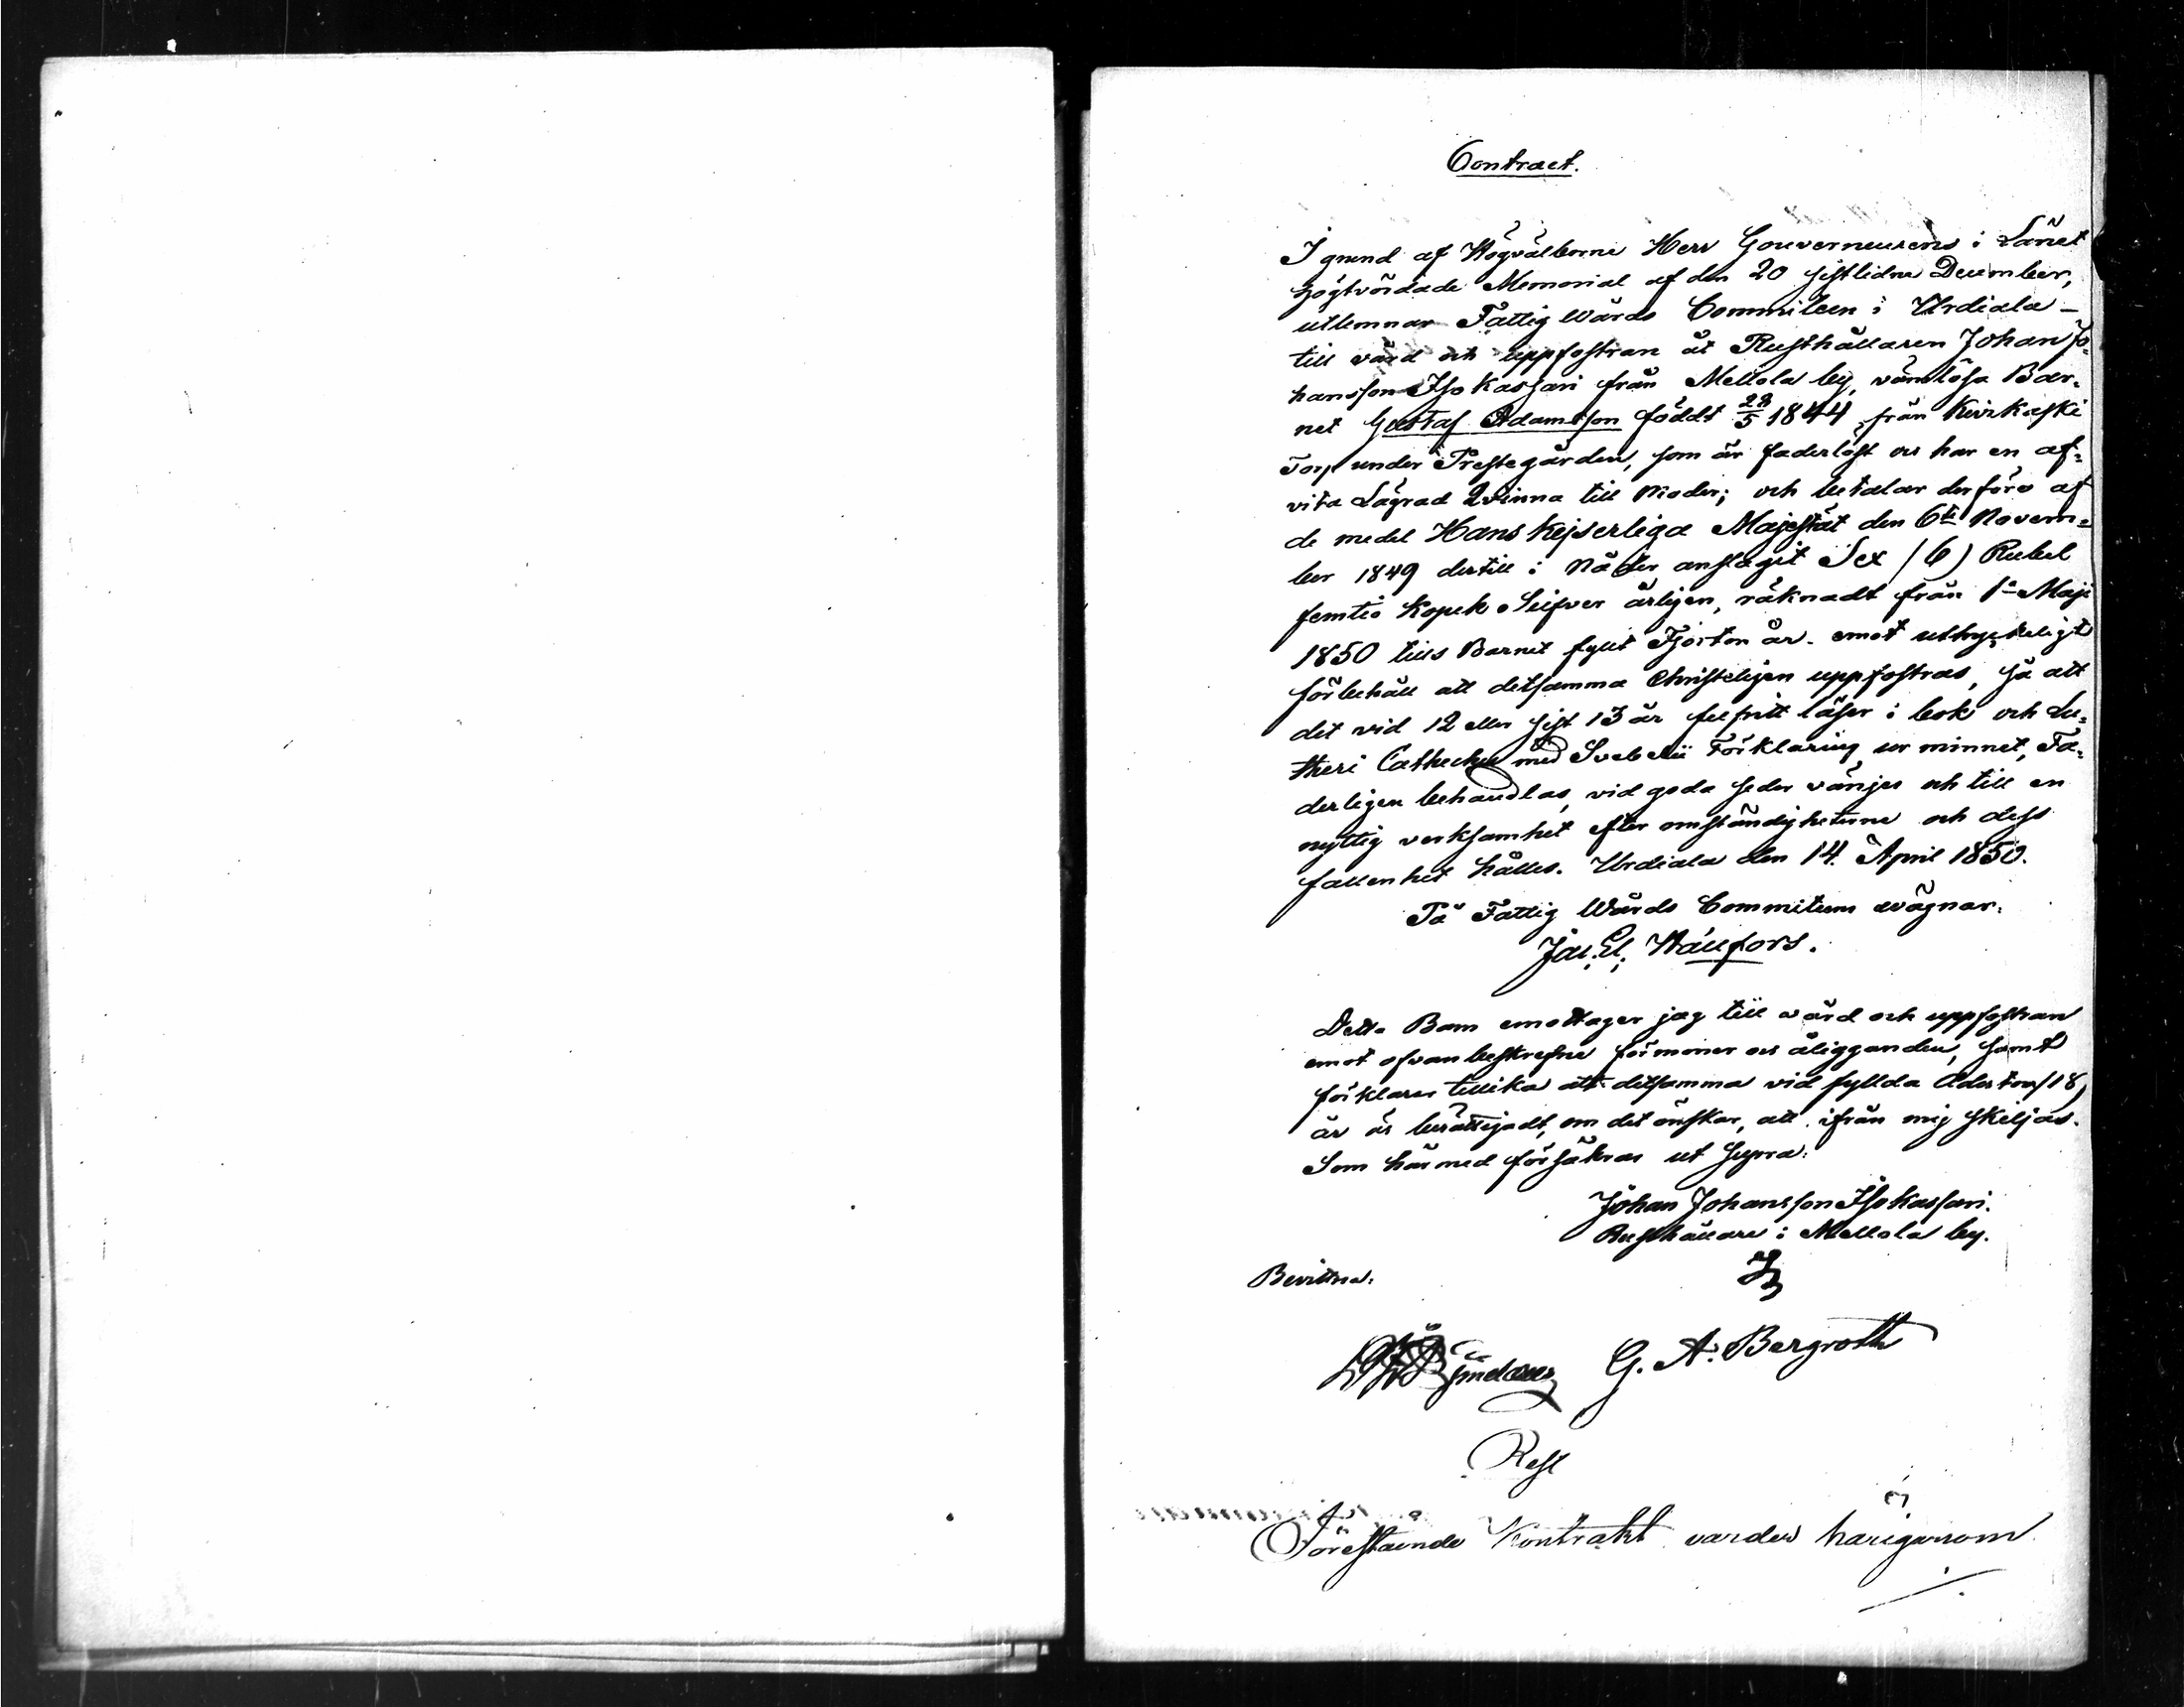 Contract.
I grund af Högvälborne Herr Gouverneurens i Länet
högtvördade Memorial af den 20 sistlidne December,
utlemnar Fattig Wårds Commiteen i Urdiala –
till vård och uppfostran åt Rusthållaren Johan Jo-
hansson Iso Kassari från Mellola by, värnlösa Bar-
net Gustaf Adamsson föddt 28/5 1844, från Kivikaski
Torp under Prestegården, som är faderlöst och har en af-
vita Lägrad Qvinna till Moder; och betalar derföre af
de medel Hans Kejserliga Majestät den 6te Novem-
ber 1849 dertill i Nåder anslagit Sex (6) Rubel
femtio Kopek Silfver årligen, räknadt från 1a Maji
1850 tills Barnet fyllt Fjorton år. emot uttryckeligt
förbehåll att detsamma Christeligen uppfostras, så att
det vid 12 eller sist 13 år felfritt läser i bok och Lu-
theri Catheches med Svebelii Förklaring ur minnet, Fa-
derligen behandlas, vid goda seder vänjes och till en
nyttig verksamhet efter omständigheterne och dess
fallenhet hålles. Urdiala den 14. April 1850.
På Fattig Wårds Commiteens vägnar.
Jac. El. Hällfors.
Detta Barn emottager jag till vård och uppfostran
emot ofvanbeskrefne förmoner och åligganden, samt
förklarar tillika att detsamma vid fyllda Aderton (18)
år är berättigadt, om det önskar, att ifrån mig skeljas.
Som härmed försäkras ut supra.
Johan Johansson Iso Kassari.
Rusthållare i Mellola by.
Bevittna:
G. A. Bergroth
Rest
Förestående Kontrakt varder härigenom